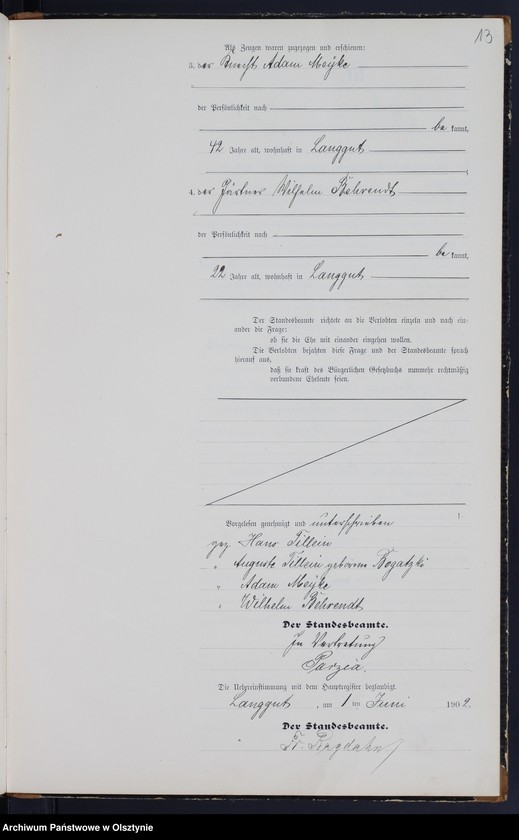 13
Als Zeugen waren zugezogen und erschienen:
3. der Knecht Adam Meyke
der Persönlichkeit nach
be kannt,
42 Jahre alt, wohnhaft in Langgut
4. der Gärtner Wilhelm Behrendt
der Persönlichkeit nach
be kannt,
22 Jahre alt, wohnhaft in Langgut
Der Standesbeamte richtete an die Verlobten einzeln und nach ein-
ander die Frage:
ob sie die Ehe mit einander eingehen wollen.
Die Verlobten bejahten diese Frage und der Standesbeamte sprach
hierauf aus,
daß sie kraft des Bürgerlichen Gesetzbuchs nunmehr rechtmäßig
verbundene Eheleute seien.
Vorgelesen genehmigt und unterschrieben
gez. Hans Tillein
" Auguste Tillein geborene Rogatzki
" Adam Meyke
" Wilhelm Behrendt
Der Standesbeamte.
In Vertretung
Parzia.
Die Uebereinstimmung mit dem Hauptregister beglaubigt.
Langgut, am 1 ten Juni 1902.
Der Standesbeamte.
Archiwum Państwowe w Olsztynie